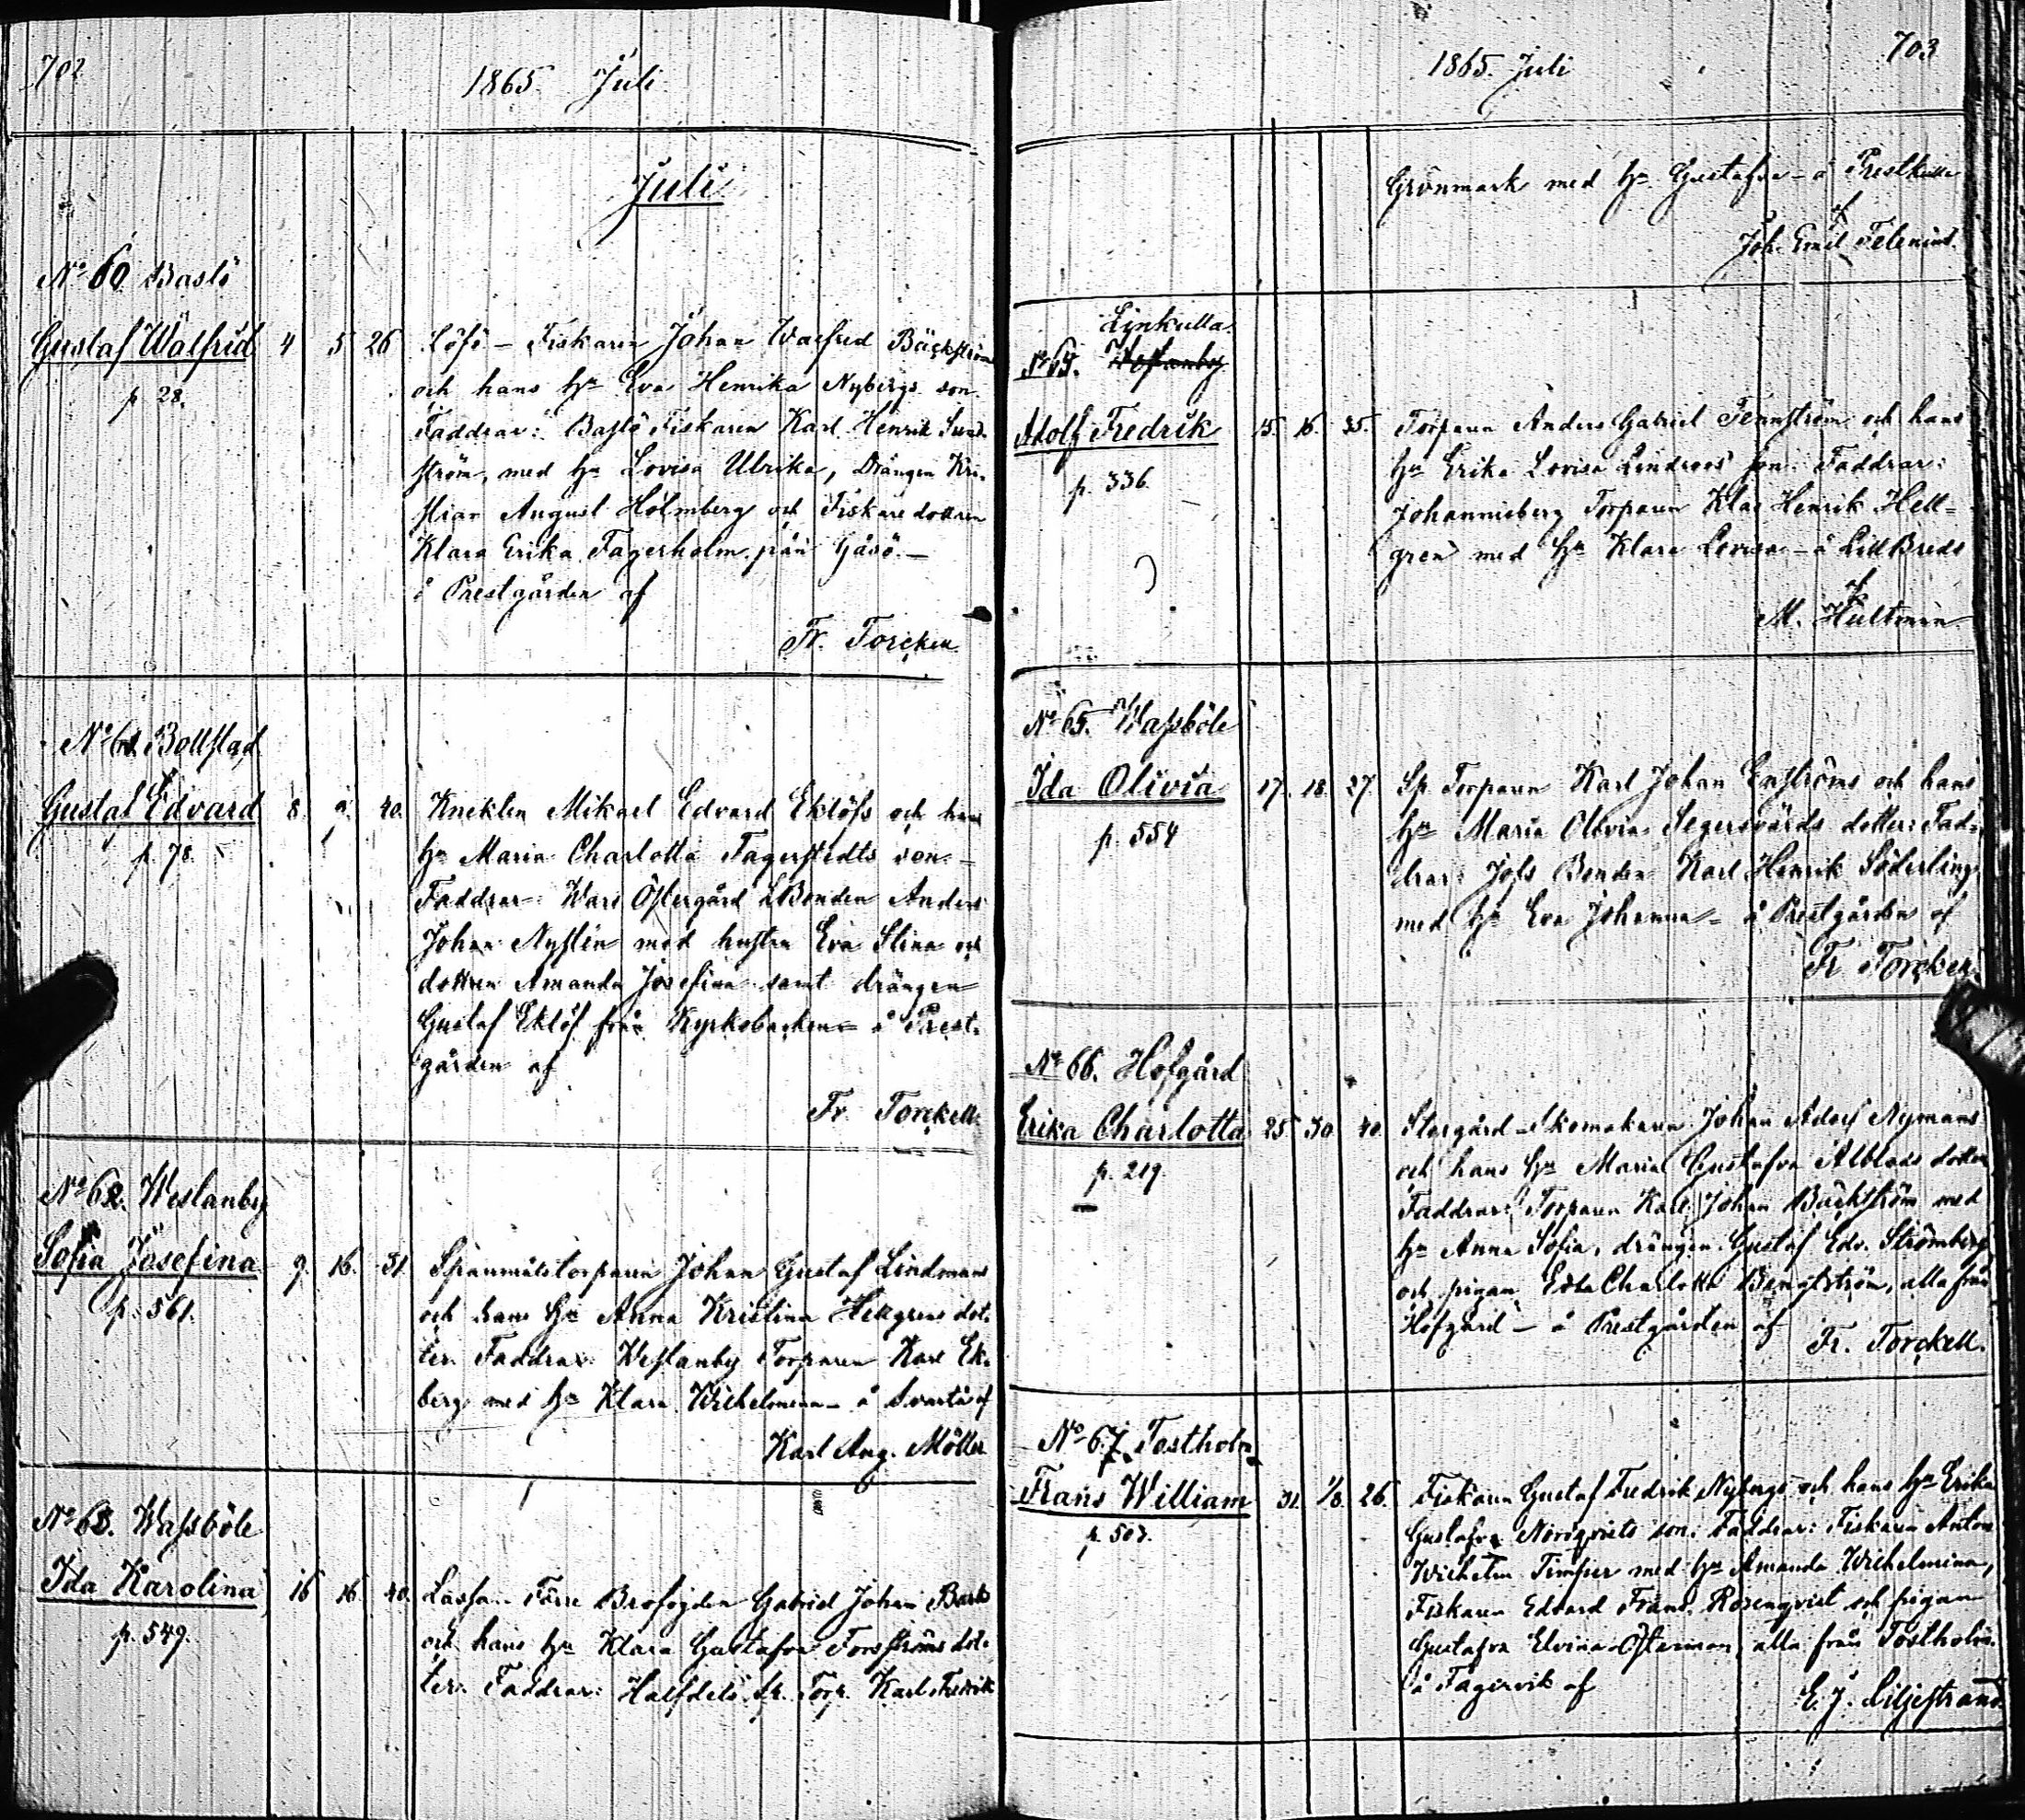 702
1865. Juli
Juli
No 60 Baslö
Gustaf Walfrid 4 5 26 Löfö - Fiskaren Johan Walfred Bäckströms
p. 28.
och hans hu Eva Henrika Nybergs son
Faddrar: Baslö Fiskaren Karl Henrik Sund-
ström, med hu Lovisa Ulrika, Drängen Kri-
stian August Holmberg och Fiskaredottren
Klara Erika Fagerholm från Gåsö. -
i Prestgården af
Fr. Torckell
No 61. Bollstad
Gustaf Edvard 8. 9. 40. Knekten Mikael Edvard Eklöfs och hans
p. 78.
hu Maria Charlotta Fagerstedts son. -
Faddrar: Wars Östergård LBonden Anders
Johan Nystén med hustru Eva Stina och
dottren Amanda Josefina samt drängen
Gustaf Eklöf från Kyrkobacken - i Prest-
gården af
Fr. Torckell
No 62. Westanby
Sofia Josefina 9. 16. 31 Spanmålstorparen Johan Gustaf Lindmans
p. 561.
och hans hu Anna Kristina Hellgrens dot-
ter. Faddrar: Westanby Torparen Karl Ek-
berg med hu Klara Wilhelmina - å Svartå af
Karl Aug. Möller
No 63. Wassböle
Ida Karolina 16 16 40. Lassas Förre Brofogden Gabriel Johan
p. 549.
och hans hu Klara Gustafva Forsströms dot-
ter. Faddrar: Halfdels fr. Torp. Karl Fredrik
703
1865. Juli
Grönmark med hu Gustafva - å Prestkulla
af
Joh. Emil Telenius.
Linkulla
No 64. Westanby
Adolf Fredrik 15. 16. 35. Torparen Anders Gabriel Fennström och hans
p. 336.
hu Erika Lovisa Lindroos' son. Faddrar:
Johannisberg Torparen Klas Henrik Hell-
gren med hu Klara Lovisa - å Lill Breds
af
M. Hultman
No 65. Wassböle
Ida Olivia 17. 18. 27 Sp. Torparen Karl Johan Enströms och hans
p. 554
hu Maria Olivia Segersvärds dotter: Fad-
drar: Jofs Bonden Karl Henrik Söderling
med hu Eva Johanna - å Prestgården af
Fr Torckell
No 66. Hofgård
Erika Charlotta 25 30 40. Storgård - Skomakaren Johan Adolf Nymans
p. 219.
och hans hu Maria Gustafva Alblads dotter
Faddrar: Torparen Karl Johan Bäckström med
hu Anna Sofia, drängen Gustaf Edv. Strömberg
och pigan Edla Charlotta Bengtström, alla från
Hofgård - å Prestgården af Fr. Torckell.
No 67. Tostholm
Frans William 31. 1/8. 26. Fiskaren Gustaf Fredrik Nybergs och hans hu Erika
p. 503.
Gustafva Norrqvists son: Faddrar: Fiskaren Anton
Wilhelm Timper med hu Amanda Wilhelmina,
Fiskaren Edvard Frans Rosenqvist och pigan
Gustafva Elvina Österman, alla från Tostholm
å Fagervik af E. J. Liljestrand